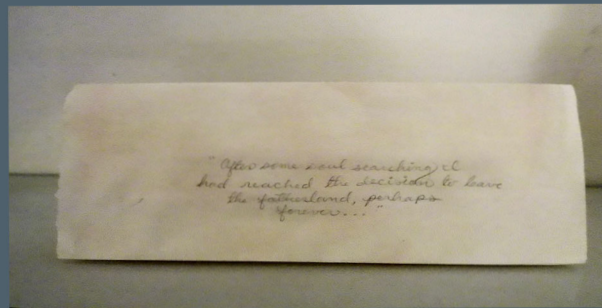 "After some soul searching I
had reached the decision to leave
the fatherland, perhaps
forever..."